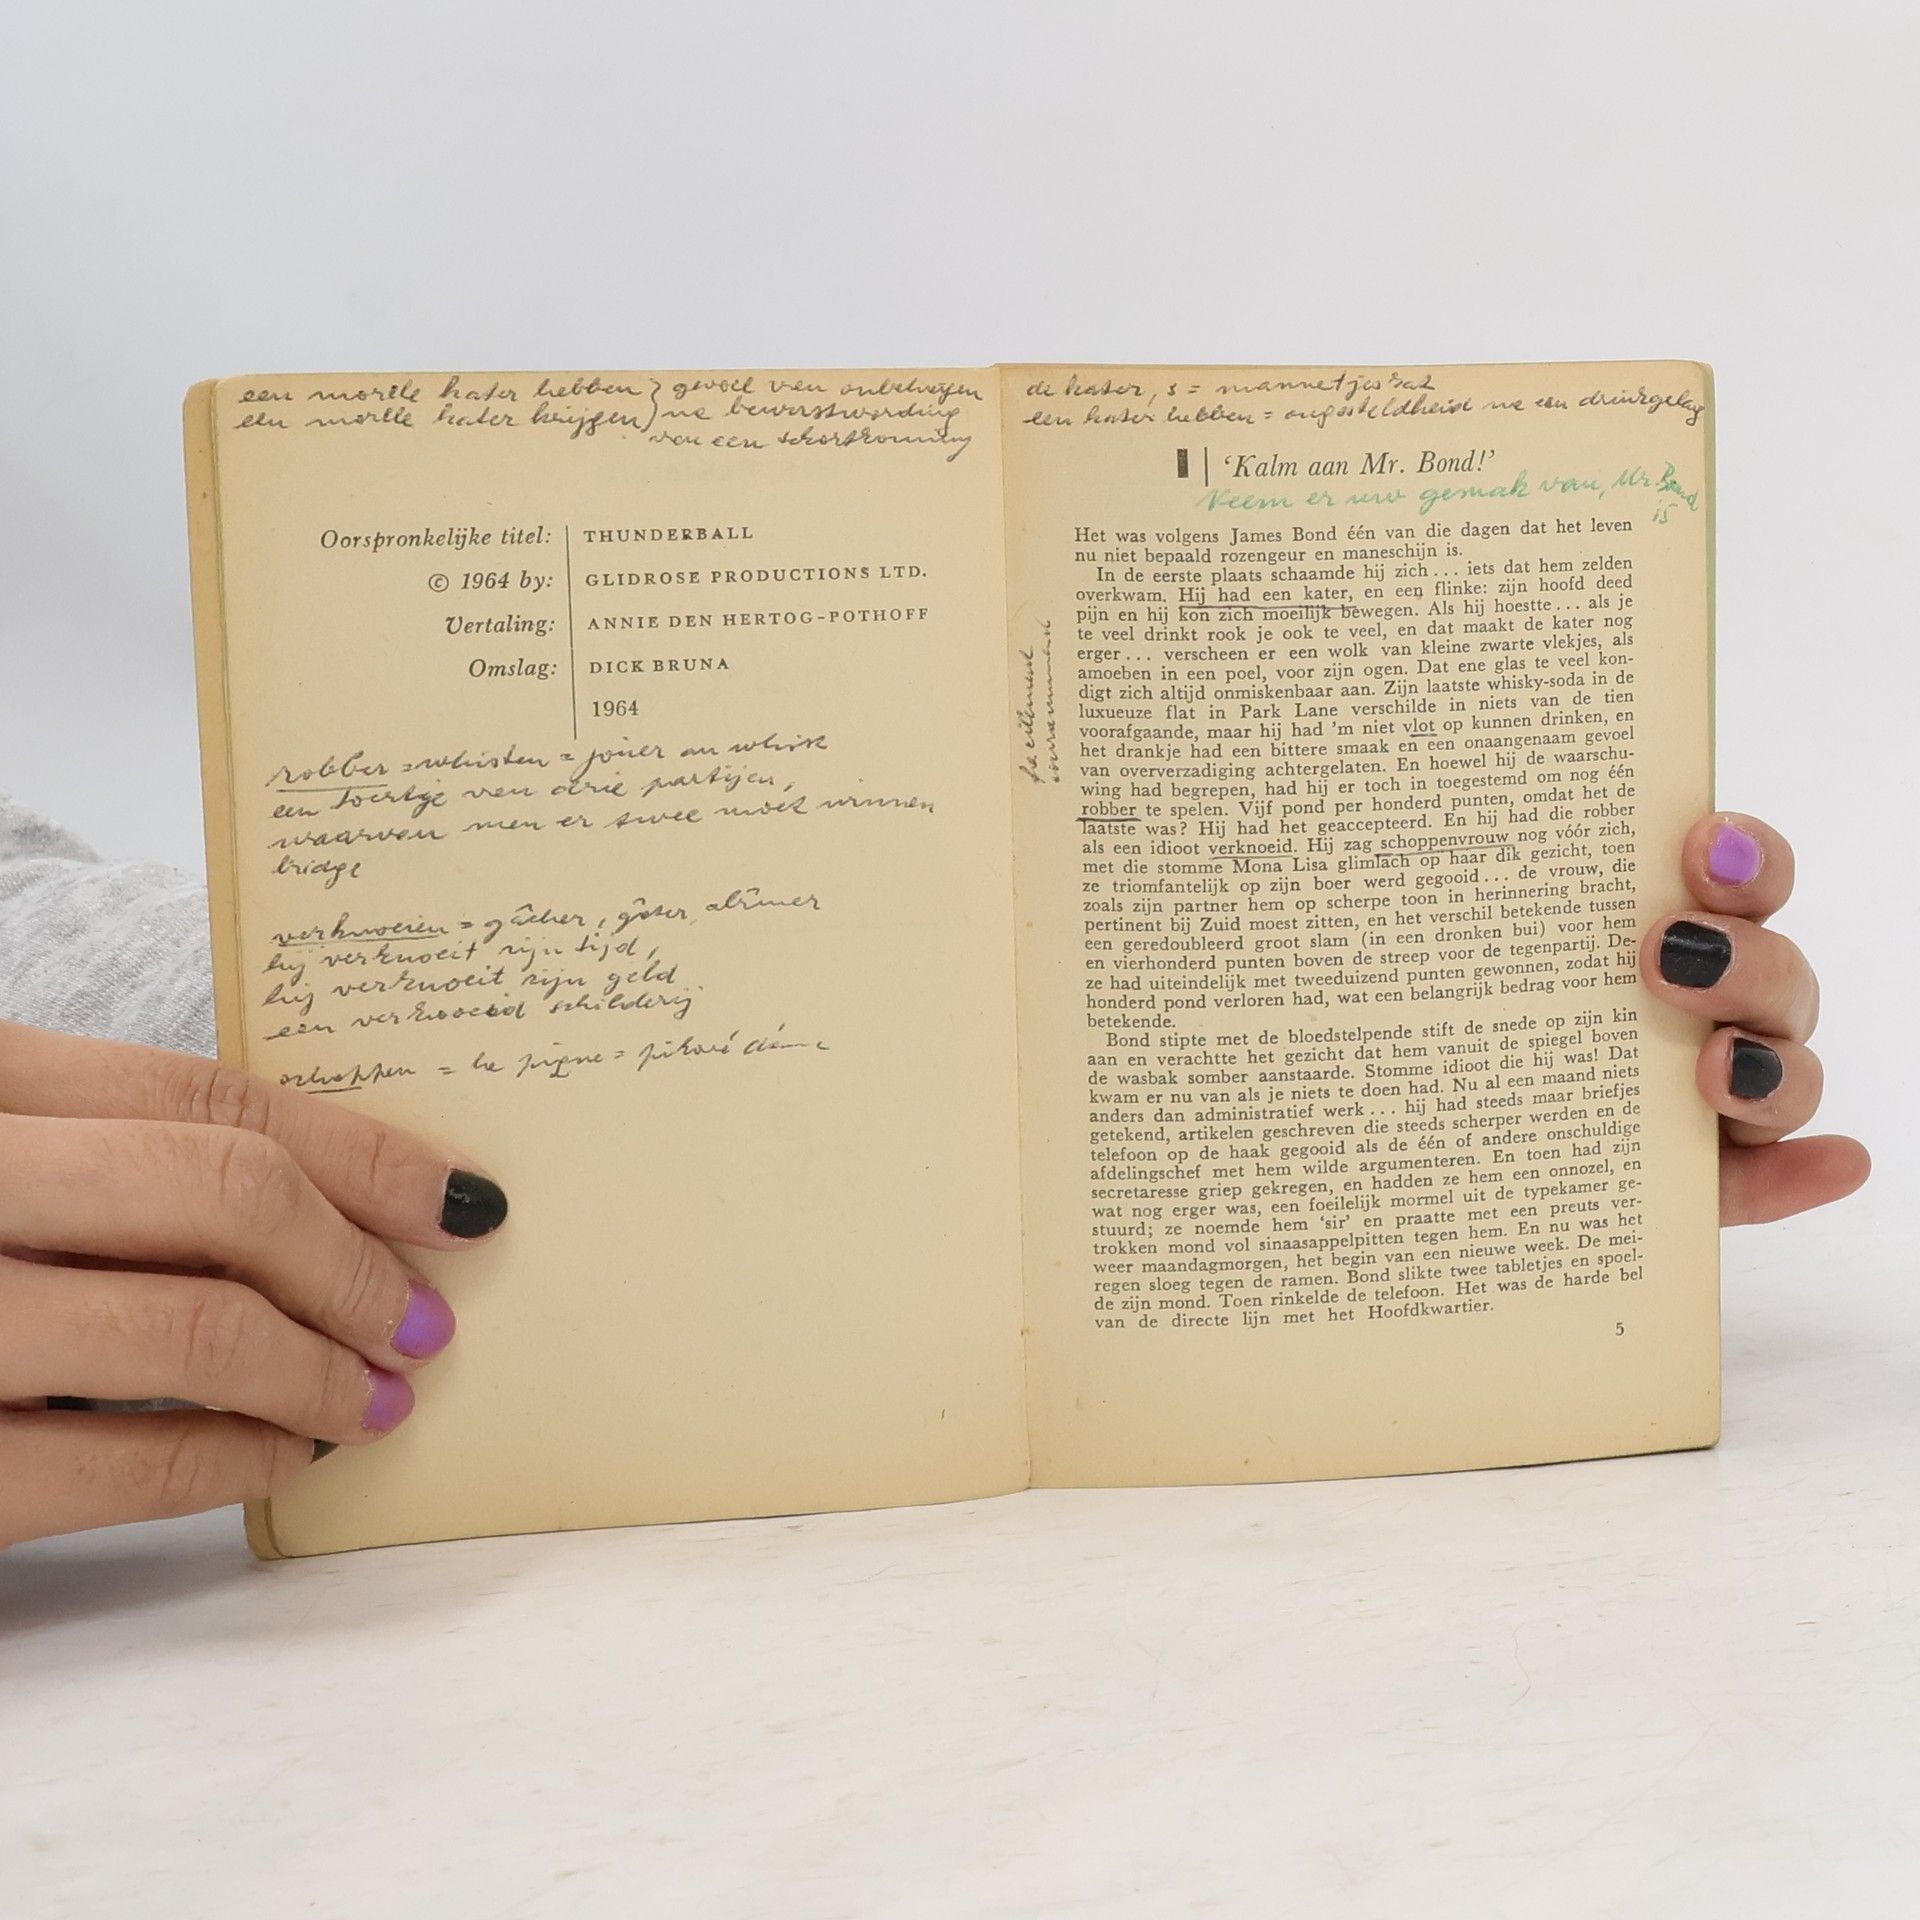 een morele kater hebben } gevoel van onbehagen
een morele kater krijgen } na bewustwording
van een tekortkoming
Oorspronkelijke titel: THUNDERBALL
© 1964 by: GLIDROSE PRODUCTIONS LTD.
Vertaling: ANNIE DEN HERTOG-POTHOFF
Omslag: DICK BRUNA
1964
robber = whisten = jouer au whist
een toertje van drie partijen,
waarvan men er twee moet winnen
bridge
verknoeien = gâcher, gâter, abîmer
hij verknoeit zijn tijd,
hij verknoeit zijn geld
een verknoeid schilderij
schoppen = le pique =
de kater, s = mannetjeskat
een kater hebben = ongesteldheid na een drinkgelag
1 | 'Kalm aan Mr. Bond!'
Neem er uw gemak van, Mr. Bond
15
facilement
couramment
Het was volgens James Bond één van die dagen dat het leven
nu niet bepaald rozengeur en maneschijn is.
In de eerste plaats schaamde hij zich... iets dat hem zelden
overkwam. Hij had een kater, en een flinke: zijn hoofd deed
pijn en hij kon zich moeilijk bewegen. Als hij hoestte... als je
te veel drinkt rook je ook te veel, en dat maakt de kater nog
erger... verscheen er een wolk van kleine zwarte vlekjes, als
amoeben in een poel, voor zijn ogen. Dat ene glas te veel kon-
digt zich altijd onmiskenbaar aan. Zijn laatste whisky-soda in de
luxueuze flat in Park Lane verschilde in niets van de tien
voorafgaande, maar hij had 'm niet vlot op kunnen drinken, en
het drankje had een bittere smaak en een onaangenaam gevoel
van oververzadiging achtergelaten. En hoewel hij de waarschu-
wing had begrepen, had hij er toch in toegestemd om nog één
robber te spelen. Vijf pond per honderd punten, omdat het de
laatste was? Hij had het geaccepteerd. En hij had die robber
als een idioot verknoeid. Hij zag schoppenvrouw nog vóór zich,
met die stomme Mona Lisa glimlach op haar dik gezicht, toen
ze triomfantelijk op zijn boer werd gegooid... de vrouw, die
zoals zijn partner hem op scherpe toon in herinnering bracht,
pertinent bij Zuid moest zitten, en het verschil betekende tussen
een geredoubleerd groot slam (in een dronken bui) voor hem
en vierhonderd punten boven de streep voor de tegenpartij. De-
ze had uiteindelijk met tweeduizend punten gewonnen, zodat hij
honderd pond verloren had, wat een belangrijk bedrag voor hem
betekende.
Bond stipte met de bloedstelpende stift de snede op zijn kin
aan en verachtte het gezicht dat hem vanuit de spiegel boven
de wasbak somber aanstaarde. Stomme idioot die hij was! Dat
kwam er nu van als je niets te doen had. Nu al een maand niets
anders dan administratief werk... hij had steeds maar briefjes
getekend, artikelen geschreven die steeds scherper werden en de
telefoon op de haak gegooid als de één of andere onschuldige
afdelingschef met hem wilde argumenteren. En toen had zijn
secretaresse griep gekregen, en hadden ze hem een onnozel, en
wat nog erger was, een foeilelijk mormel uit de typekamer ge-
stuurd; ze noemde hem 'sir' en praatte met een preuts ver-
trokken mond vol sinaasappelpitten tegen hem. En nu was het
weer maandagmorgen, het begin van een nieuwe week. De mei-
regen sloeg tegen de ramen. Bond slikte twee tabletjes en spoel-
de zijn mond. Toen rinkelde de telefoon. Het was de harde bel
van de directe lijn met het Hoofdkwartier.
5